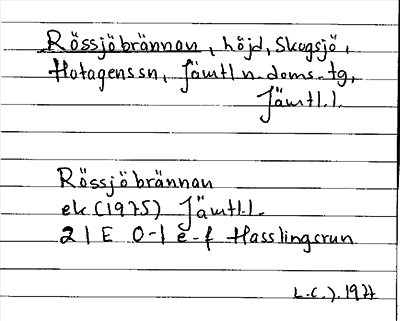 Rössjöbrännan, höjd, Skogsjö,
Hotagens sn, Jämtl n. doms. tg,
Jämtl.l.
Rössjöbrännan
ek (1975) Jämtl.l.
21 E 0-1 e-f Hasslingsrun